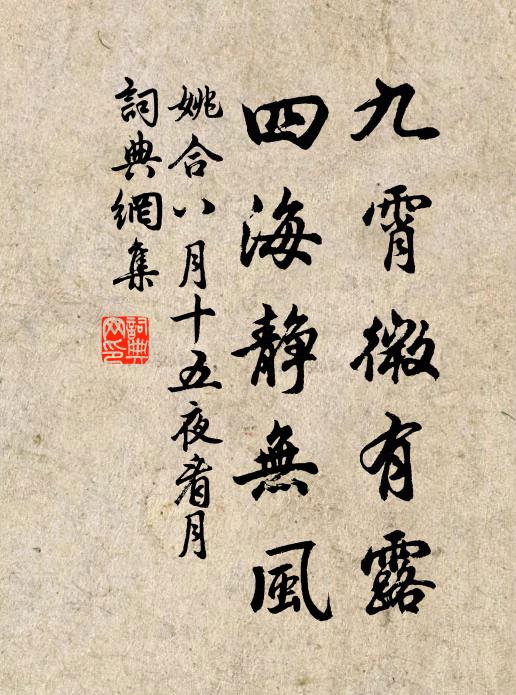 九霄微有露
四海静無風
姚合八月十五夜看月
詞典網集
詞典网印